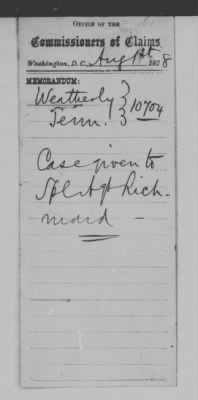 OFFICE OF THE
Commissioners of Claims
Washington, D.C., Aug 1st 1878
MEMORANDUM:
Weatherly } 10704
Tenn. }
Case given to
Spl Agt Rich-
mond —